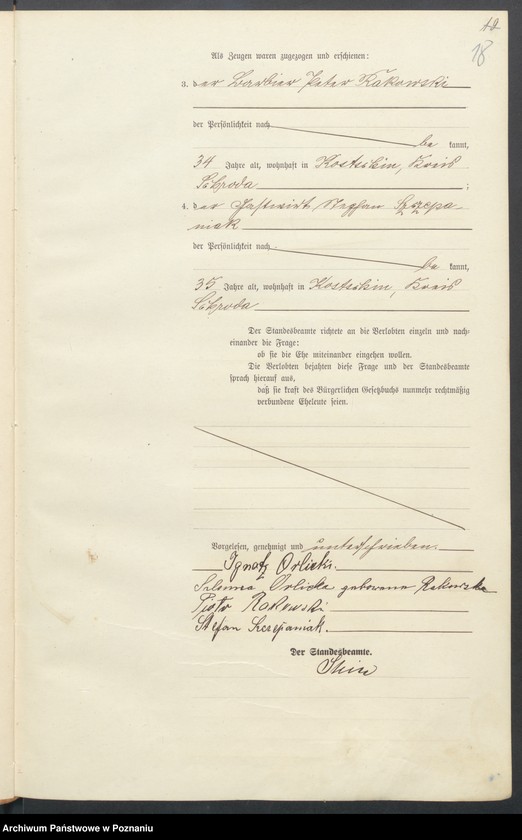 12
18
Als Zeugen waren zugezogen und erschienen:
3. der Barbier Peter Rakowski
der Persönlichkeit nach
be kannt,
34 Jahre alt, wohnhaft in Kostschin, Kreis
Schroda ;
4. der Gastwirt Stephan Szczepa-
niak
der Persönlichkeit nach
be kannt,
35 Jahre alt, wohnhaft in Kostschin, Kreis
Schroda
Der Standesbeamte richtete an die Verlobten einzeln und nach-
einander die Frage:
ob sie die Ehe miteinander eingehen wollen.
Die Verlobten bejahten diese Frage und der Standesbeamte
sprach hierauf aus,
daß sie kraft des Bürgerlichen Gesetzbuchs nunmehr rechtmäßig
verbundene Eheleute seien.
Vorgelesen, genehmigt und unterschrieben.
Ignatz Orlicki.
Orlicka geborene Rakowska
Piotr Rakowski
Stefan Szczepaniak.
Der Standesbeamte.
Archiwum Państwowe w Poznaniu